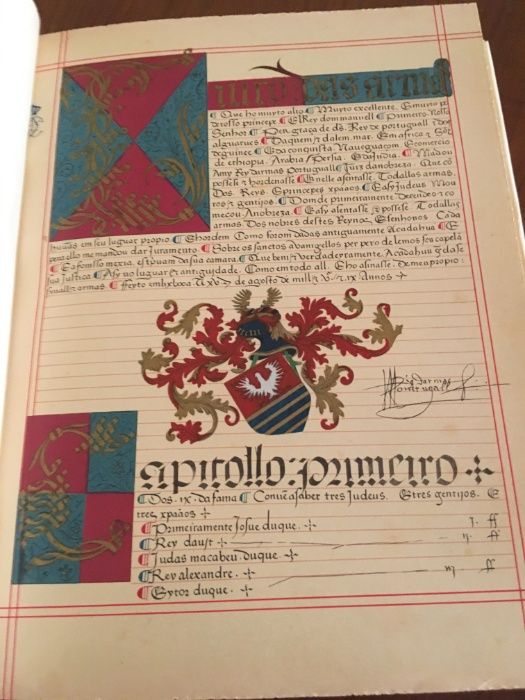 Livro Das arma
¶ Que ho muyto alto ¶ Muyto excellente. E muyto p
deroso princepe. ¶ El Rey dom manuell ¶ primeiro. Nosso
Senhor ¶ Per graça de ds. Rey de portuguall e dos
alguarues ¶ Daquem e dalem. mar. Em africa
de guinee ¶ da conquista Nauegaçam. E comercio
de ethiopia. Arabia persia. E da India. ¶ Madou
Amy Rey darmas portuguall ¶ Juiz da nobreza. Que co
posesse e hordenasse ¶ nelle asentasse. Todallas armas.
Dos Reys. E princepes xpaãos ¶ E asy Judeus. Mou
ros e gentijos. ¶ Domde primeiramente
mecou Anobreza. ¶ E asy asentasse e posesse Todallas
armas. Dos nobres destes Reynos. E senhorios Cada
em seu luguar propio ¶ E hordem Como foram dadas antiguamente ¶ E
pera ello me mandou dar Juramento ¶ Sobre os sanctos avangellos per pero de lemos seu capelã
¶ da sua camara ¶ Que bem e verdadeyramente
sua justica ¶ Asy no luguar e antiguidade. Como em todo all. E ho asinasse. de meu propio
sinall e armas. ¶ de agosto de mill annos
Rey darmas
Portugal
Capitollo: primeiro
¶ Dos. ix. da fama ¶ Convẽ a saber tres Judeus. E tres gentijos. E
tres xpaãos
¶ Primeiramente Josue duque. j. ff
¶ Rey dauit ij. ff
¶ Judas macabeu. duque.
¶ Rey alexandre. ff
¶ Eytor duque.